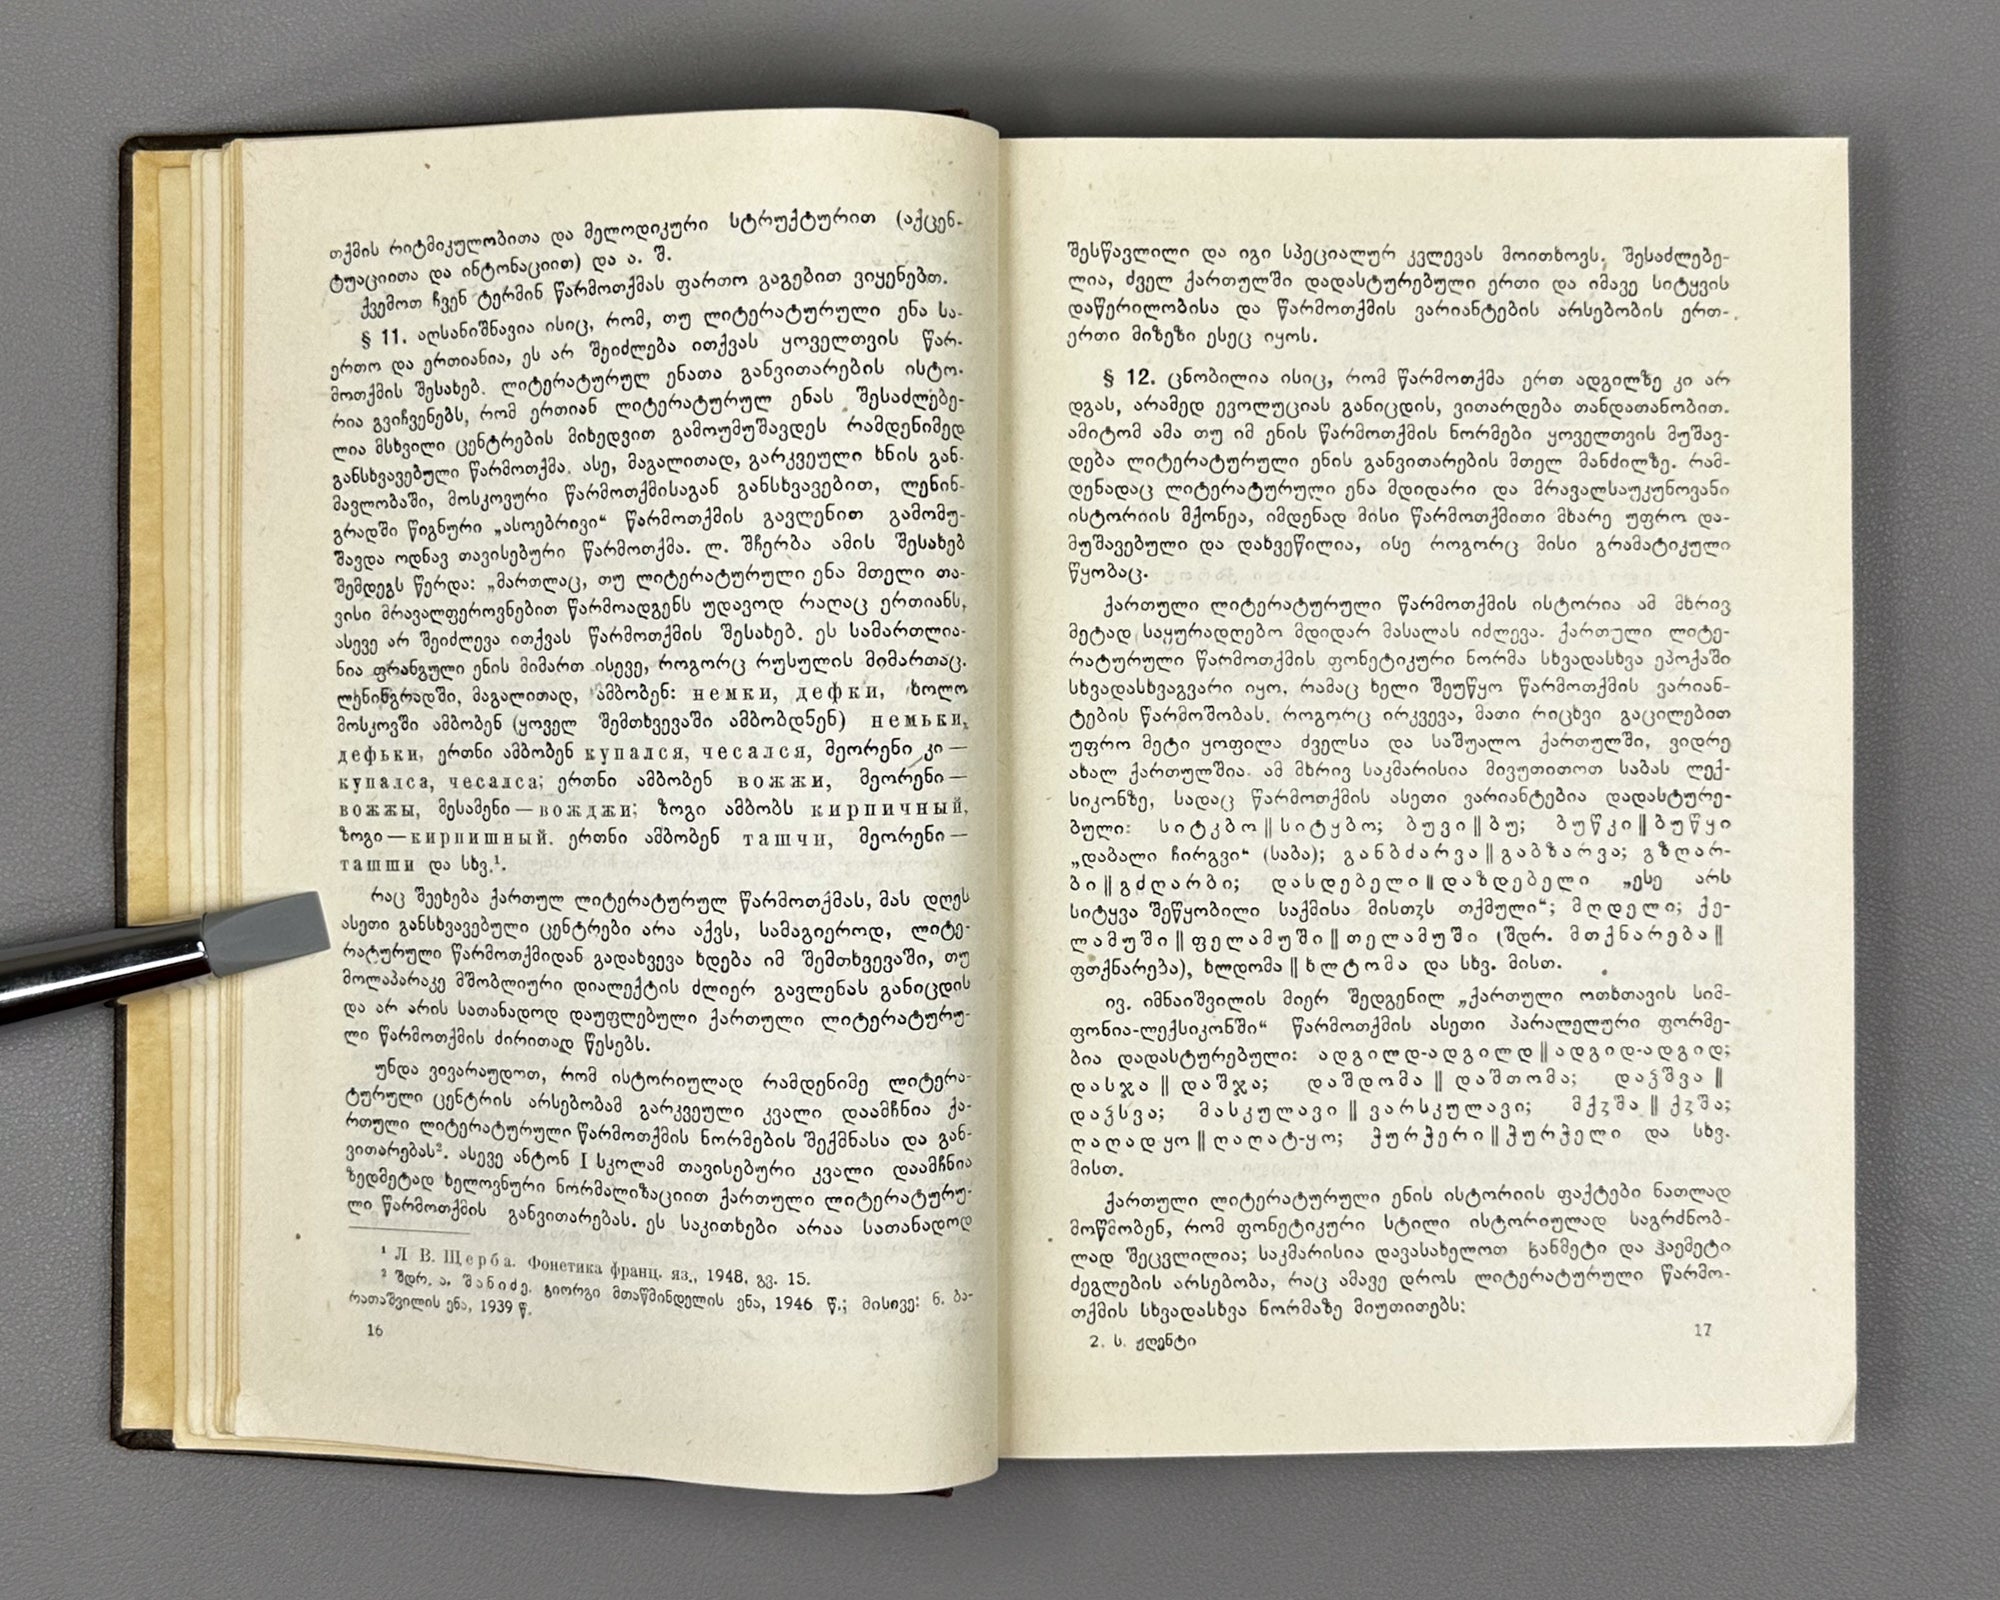 თქმის რიტმიკულობითა და მელოდიკური სტრუქტურით (აქცენ-
ტუაციითა და ინტონაციით) და ა. შ.
ქვემოთ ჩვენ ტერმინ წარმოთქმას ფართო გაგებით ვიყენებთ.
§ 11. აღსანიშნავია ისიც, რომ, თუ ლიტერატურული ენა სა-
ერთო და ერთიანია, ეს არ შეიძლება ითქვას ყოველთვის წარ-
მოთქმის შესახებ. ლიტერატურულ ენათა განვითარების ისტო-
რია გვიჩვენებს, რომ ერთიან ლიტერატურულ ენას შესაძლებე-
ლია მსხვილი ცენტრების მიხედვით გამოუმუშავდეს რამდენიმედ
განსხვავებული წარმოთქმა. ასე, მაგალითად, გარკვეული ხნის გან-
მავლობაში, მოსკოვური წარმოთქმისაგან განსხვავებით, ლენინ-
გრადში წიგნური „ასოებრივი“ წარმოთქმის გავლენით გამომუ-
შავდა ოდნავ თავისებური წარმოთქმა. ლ. შჩერბა ამის შესახებ
შემდეგს წერდა: „მართლაც, თუ ლიტერატურული ენა მთელი თა-
ვისი მრავალფეროვნებით წარმოადგენს უდავოდ რაღაც ერთიანს,
ასევე არ შეიძლევა ითქვას წარმოთქმის შესახებ. ეს სამართლია-
ნია ფრანგული ენის მიმართ ისევე, როგორც რუსულის მიმართაც.
ლენინგრადში, მაგალითად, ამბობენ: немки, дефки, ხოლო
მოსკოვში ამბობენ (ყოველ შემთხვევაში ამბობდნენ) немьки,
дефьки, ერთნი ამბობენ купался, чесался, მეორენი კი —
купалса, чесалса; ერთნი ამბობენ вожжи, მეორენი —
вожжы, მესამენი — вожджи; ზოგი ამბობს кирпичный,
ზოგი — кирпишный. ერთნი ამბობენ ташчи, მეორენი —
ташши და სხვ.¹.
რაც შეეხება ქართულ ლიტერატურულ წარმოთქმას, მას დღეს
ასეთი განსხვავებული ცენტრები არა აქვს, სამაგიეროდ, ლიტე-
რატურული წარმოთქმიდან გადახვევა ხდება იმ შემთხვევაში, თუ
მოლაპარაკე მშობლიური დიალექტის ძლიერ გავლენას განიცდის
და არ არის სათანადოდ დაუფლებული ქართული ლიტერატურუ-
ლი წარმოთქმის ძირითად წესებს.
უნდა ვივარაუდოთ, რომ ისტორიულად რამდენიმე ლიტერა-
ტურული ცენტრის არსებობამ გარკვეული კვალი დაამჩნია ქა-
რთული ლიტერატურული წარმოთქმის ნორმების შექმნასა და გან-
ვითარებას². ასევე ანტონ I სკოლამ თავისებური კვალი დაამჩნია
ზედმეტად ხელოვნური ნორმალიზაციით ქართული ლიტერატურუ-
ლი წარმოთქმის განვითარებას. ეს საკითხები არაა სათანადოდ
¹ Л В. Щерба. Фонетика франц. яз., 1948, გვ. 15.
² შდრ. ა. შანიძე. გიორგი მთაწმინდელის ენა, 1946 წ.; მისივე: ნ. ბა-
რათაშვილის ენა, 1939 წ.
16
შესწავლილი და იგი სპეციალურ კვლევას მოითხოვს. შესაძლებე-
ლია, ძველ ქართულში დადასტურებული ერთი და იმავე სიტყვის
დაწერილობისა და წარმოთქმის ვარიანტების არსებობის ერთ-
ერთი მიზეზი ესეც იყოს.
§ 12. ცნობილია ისიც, რომ წარმოთქმა ერთ ადგილზე კი არ
დგას, არამედ ევოლუციას განიცდის, ვითარდება თანდათანობით.
ამიტომ ამა თუ იმ ენის წარმოთქმის ნორმები ყოველთვის მუშავ-
დება ლიტერატურული ენის განვითარების მთელ მანძილზე. რამ-
დენადაც ლიტერატურული ენა მდიდარი და მრავალსაუკუნოვანი
ისტორიის მქონეა, იმდენად მისი წარმოთქმითი მხარე უფრო და-
მუშავებული და დახვეწილია, ისე როგორც მისი გრამატიკული
წყობაც.
ქართული ლიტერატურული წარმოთქმის ისტორია ამ მხრივ
მეტად საყურადღებო მდიდარ მასალას იძლევა. ქართული ლიტე-
რატურული წარმოთქმის ფონეტიკური ნორმა სხვადასხვა ეპოქაში
სხვადასხვაგვარი იყო, რამაც ხელი შეუწყო წარმოთქმის ვარიან-
ტების წარმოშობას. როგორც ირკვევა, მათი რიცხვი გაცილებით
უფრო მეტი ყოფილა ძველსა და საშუალო ქართულში, ვიდრე
ახალ ქართულშია. ამ მხრივ საკმარისია მივუთითოთ საბას ლექ-
სიკონზე, სადაც წარმოთქმის ასეთი ვარიანტებია დადასტურე-
ბული: სიტკბო || სიტყბო; ბუვი || ბუ; ბუწკი || ბუწყი
„დაბალი ჩირგვი“ (საბა); განბძარვა || გაბზარვა; გზღარ-
ბი || გძღარბი; დასდებელი || დაზდებელი „ესე არს
სიტყვა შეწყობილი საქმისა მისთჳს თქმული“; მღდელი; ქე-
ლამუში || ფელამუში || თელამუში (შდრ. მთქნარება ||
ფთქნარება), ხლდომა || ხლტომა და სხვ. მისთ.
ივ. იმნაიშვილის მიერ შედგენილ „ქართული ოთხთავის სიმ-
ფონია-ლექსიკონში“ წარმოთქმის ასეთი პარალელური ფორმე-
ბია დადასტურებული: ადგილდ-ადგილდ || ადგიდ-ადგიდ;
დასჯა || დაშჯა; დაშდომა || დაშთომა; დაჴშვა ||
დაჴსვა; მასკულავი || ვარსკულავი; მქჳშა || ქჳშა;
ღაღადყო || ღაღატ-ყო; ჭურჭერი || ჭურჭელი და სხვ.
მისთ.
ქართული ლიტერატურული ენის ისტორიის ფაქტები ნათლად
მოწმობენ, რომ ფონეტიკური სტილი ისტორიულად საგრძნობ-
ლად შეცვლილია; საკმარისია დავასახელოთ ხანმეტი და ჰაემეტი
ძეგლების არსებობა, რაც ამავე დროს ლიტერატურული წარმო-
თქმის სხვადასხვა ნორმაზე მიუთითებს:
2. ს. ჟღენტი
17